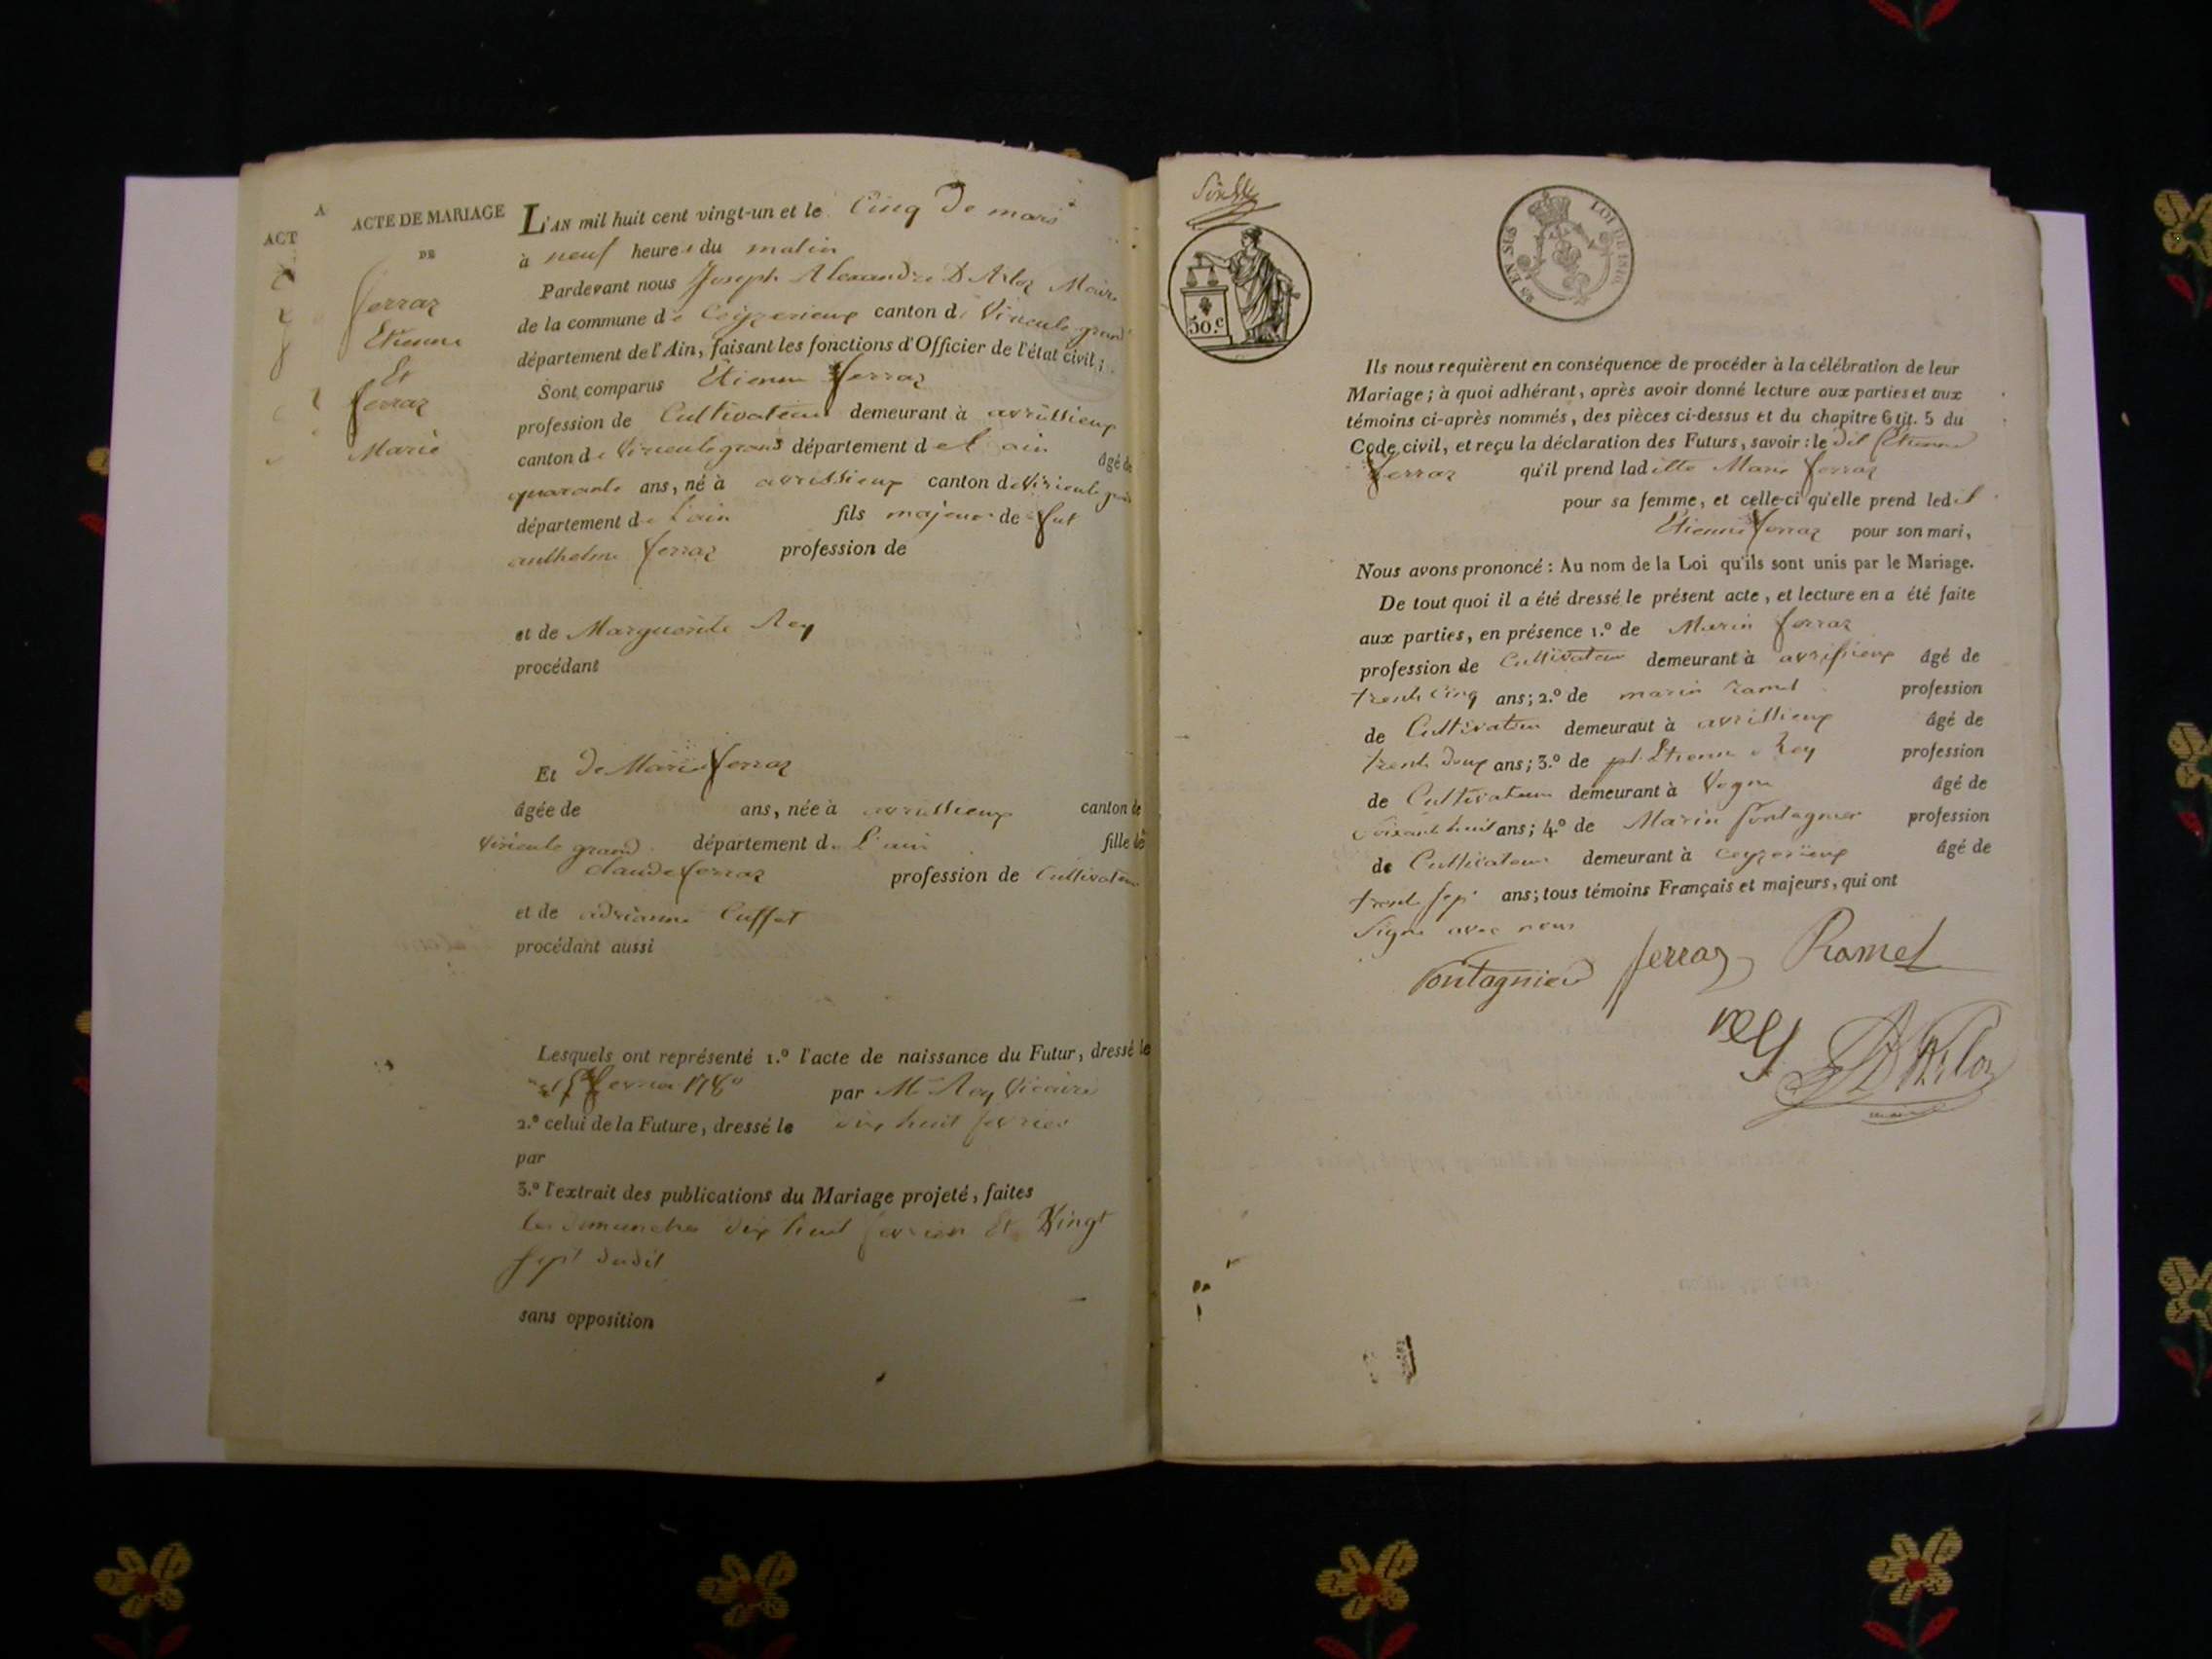 A
ACT
ACTE DE MARIAGE
DE
ferraz
Etienne
Et
ferraz
Marie
L'AN mil huit cent vingt-un et le Cinq De mars
à neuf heures du matin
Pardevant nous Joseph Alexandre D Arloz Maire
de la commune de Ceyzerieux canton de Virieule grand
département de l'Ain, faisant les fonctions d'Officier de l'état civil;
Sont comparus Etienne ferraz
profession de Cultivateur demeurant à avrissieux
canton de Virieulegrand département de l'ain âgé de
quarante ans, né à avrissieux canton de Virieule
département de l'ain fils majeur de fut
anthelme ferraz profession de
et de Marguerite Rey
procédant
Et De Marie ferraz
âgée de ans, née à avrissieux canton de
Virieule grand département de l'ain fille de
claude ferraz profession de Cultivateur
et de adrianne Cuffet
procédant aussi
Lesquels ont représenté 1.º l'acte de naissance du Futur, dressé le
par Mr Rey Vicaire
2.º celui de la Future, dressé le dix huit fevrier
par
3.º l'extrait des publications du Mariage projeté, faites
les dimanches dix huit fevrier Et Vingt
sept dudit
sans opposition
50.c
LOI DE 1816
EN SUS
Ils nous requièrent en conséquence de procéder à la célébration de leur
Mariage; à quoi adhérant, après avoir donné lecture aux parties et aux
témoins ci-après nommés, des pièces ci-dessus et du chapitre 6 tit. 5 du
Code civil, et reçu la déclaration des Futurs, savoir: le dit Etienne
ferraz qu'il prend ladille Marie ferraz
pour sa femme, et celle-ci qu'elle prend ledit
Etienne ferraz pour son mari,
Nous avons prononcé: Au nom de la Loi qu'ils sont unis par le Mariage.
De tout quoi il a été dressé le présent acte, et lecture en a été faite
aux parties, en présence 1.º de Marin ferraz
profession de Cultivateur demeurant à avrissieux âgé de
trente Cinq ans; 2.º de marin ramel profession
de Cultivateur demeuraut à avrissieux âgé de
trente deux ans; 3.º de Etienne Rey profession
de Cultivateur demeurant à Vogne âgé de
Soixante huit ans; 4.º de Marin Pontagnier profession
de Cultivateur demeurant à ceyzerieux âgé de
trente sept ans; tous témoins Français et majeurs, qui ont
Signé avec nous
Pontagnier ferraz Ramel
rey D Arloz
maire